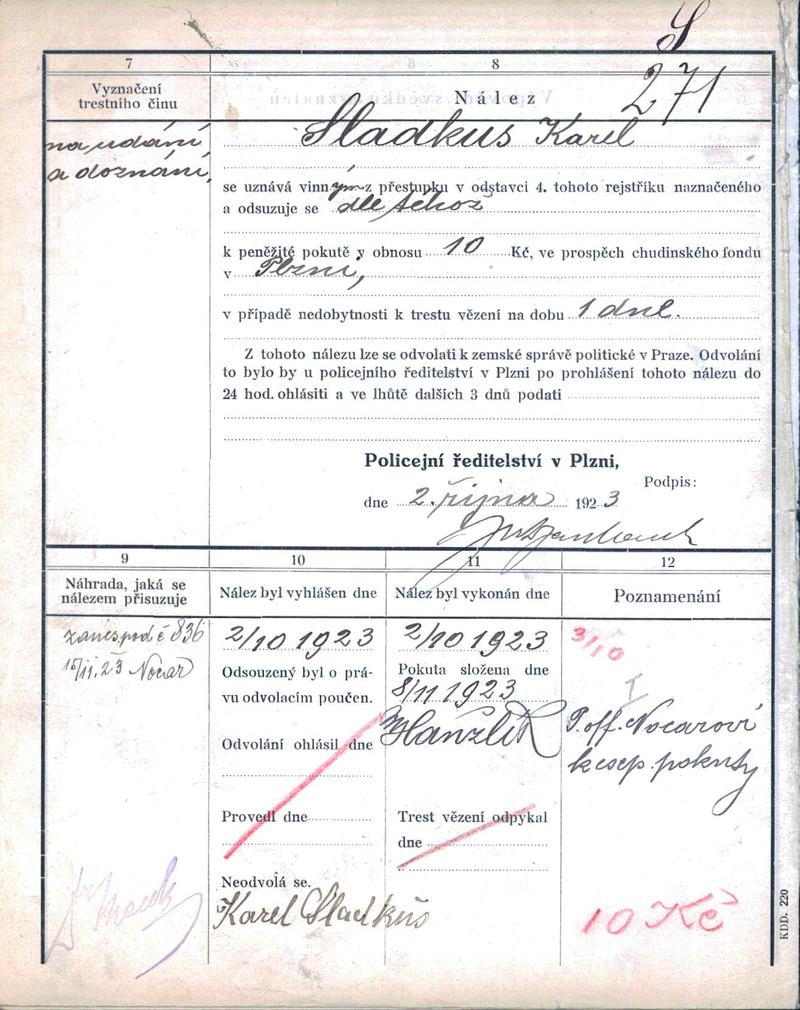 S
271
7
Vyznačení
trestního činu
na udání
a doznání,
8
Nález
Sladkus Karel
se uznává vinným z přestupku v odstavci 4. tohoto rejstříku naznačeného
a odsuzuje se dle téhož
k peněžité pokutě v obnosu 10 Kč, ve prospěch chudinského fondu
v Plzni,
v případě nedobytnosti k trestu vězení na dobu 1 dne.
Z tohoto nálezu lze se odvolati k zemské správě politické v Praze. Odvolání
to bylo by u policejního ředitelství v Plzni po prohlášení tohoto nálezu do
24 hod. ohlásiti a ve lhůtě dalších 3 dnů podati
Policejní ředitelství v Plzni,
Podpis:
dne 2. října 1923
9
Náhrada, jaká se
nálezem přisuzuje
zanes. pod č 836
15/11.23 Nocar
10
Nález byl vyhlášen dne
2/10 1923
Odsouzený byl o prá-
vu odvolacím poučen.
Odvolání ohlásil dne
Provedl dne
Neodvolá se.
Karel Sladkuš
11
Nález byl vykonán dne
2/10 1923
Pokuta složena dne
8/11 1923
Hanzlík
Trest vězení odpykal
dne
12
Poznamenání
3/10
I
P. off. Nocarovi
k csep. pokuty
10 Kč
KDD. 220